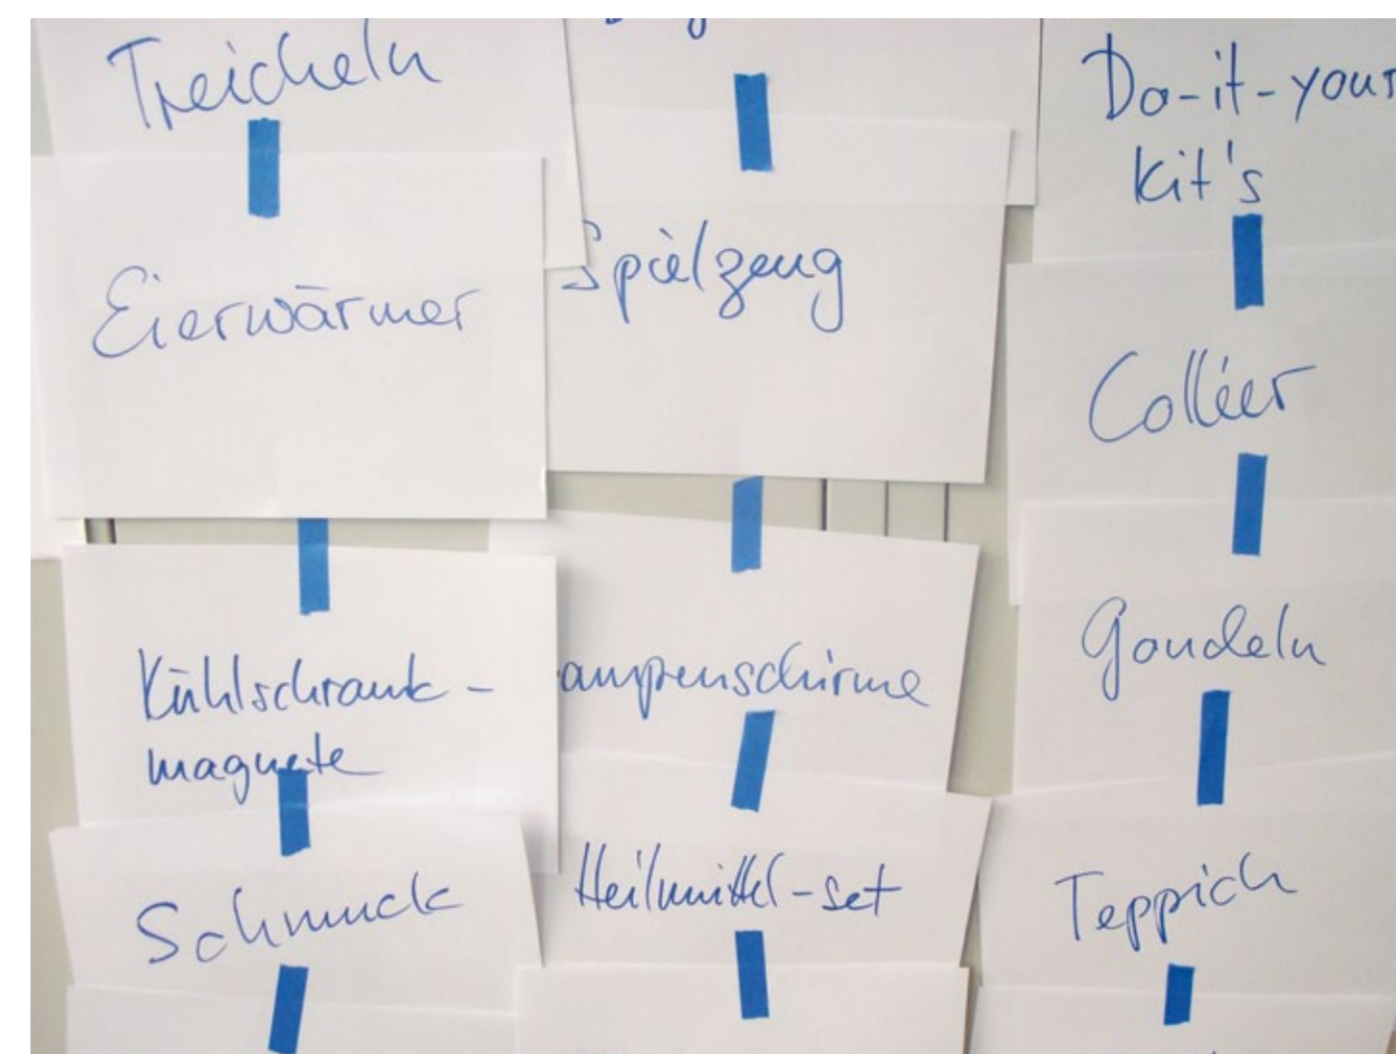 Treicheln
Eierwärmer
Kühlschrank-
magnete
Schmuck
Spielzeug
ampenschirme
Heilmittel-set
Do-it-your
kit's
Colléer
Gondeln
Teppich